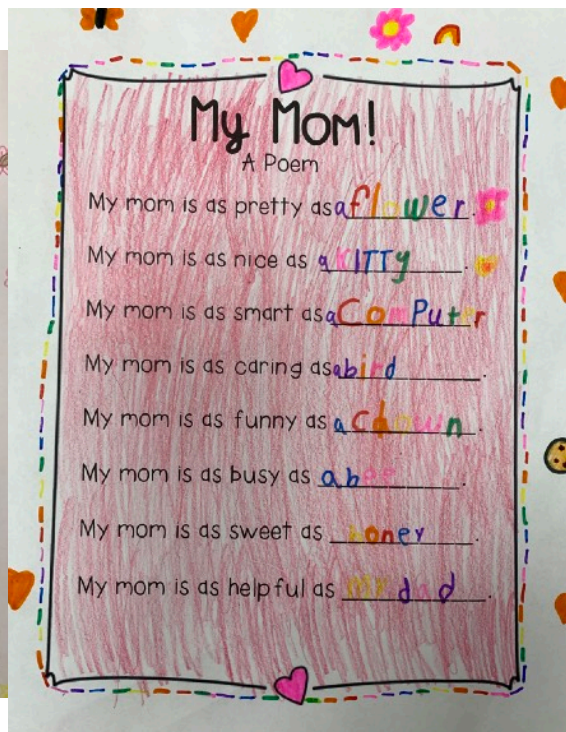 My Mom!
A Poem
My mom is as pretty as a flower.
My mom is as nice as a KITTy.
My mom is as smart as a ComPuter
My mom is as caring as a bird.
My mom is as funny as a clown.
My mom is as busy as a bee.
My mom is as sweet as honey.
My mom is as helpful as my dad.